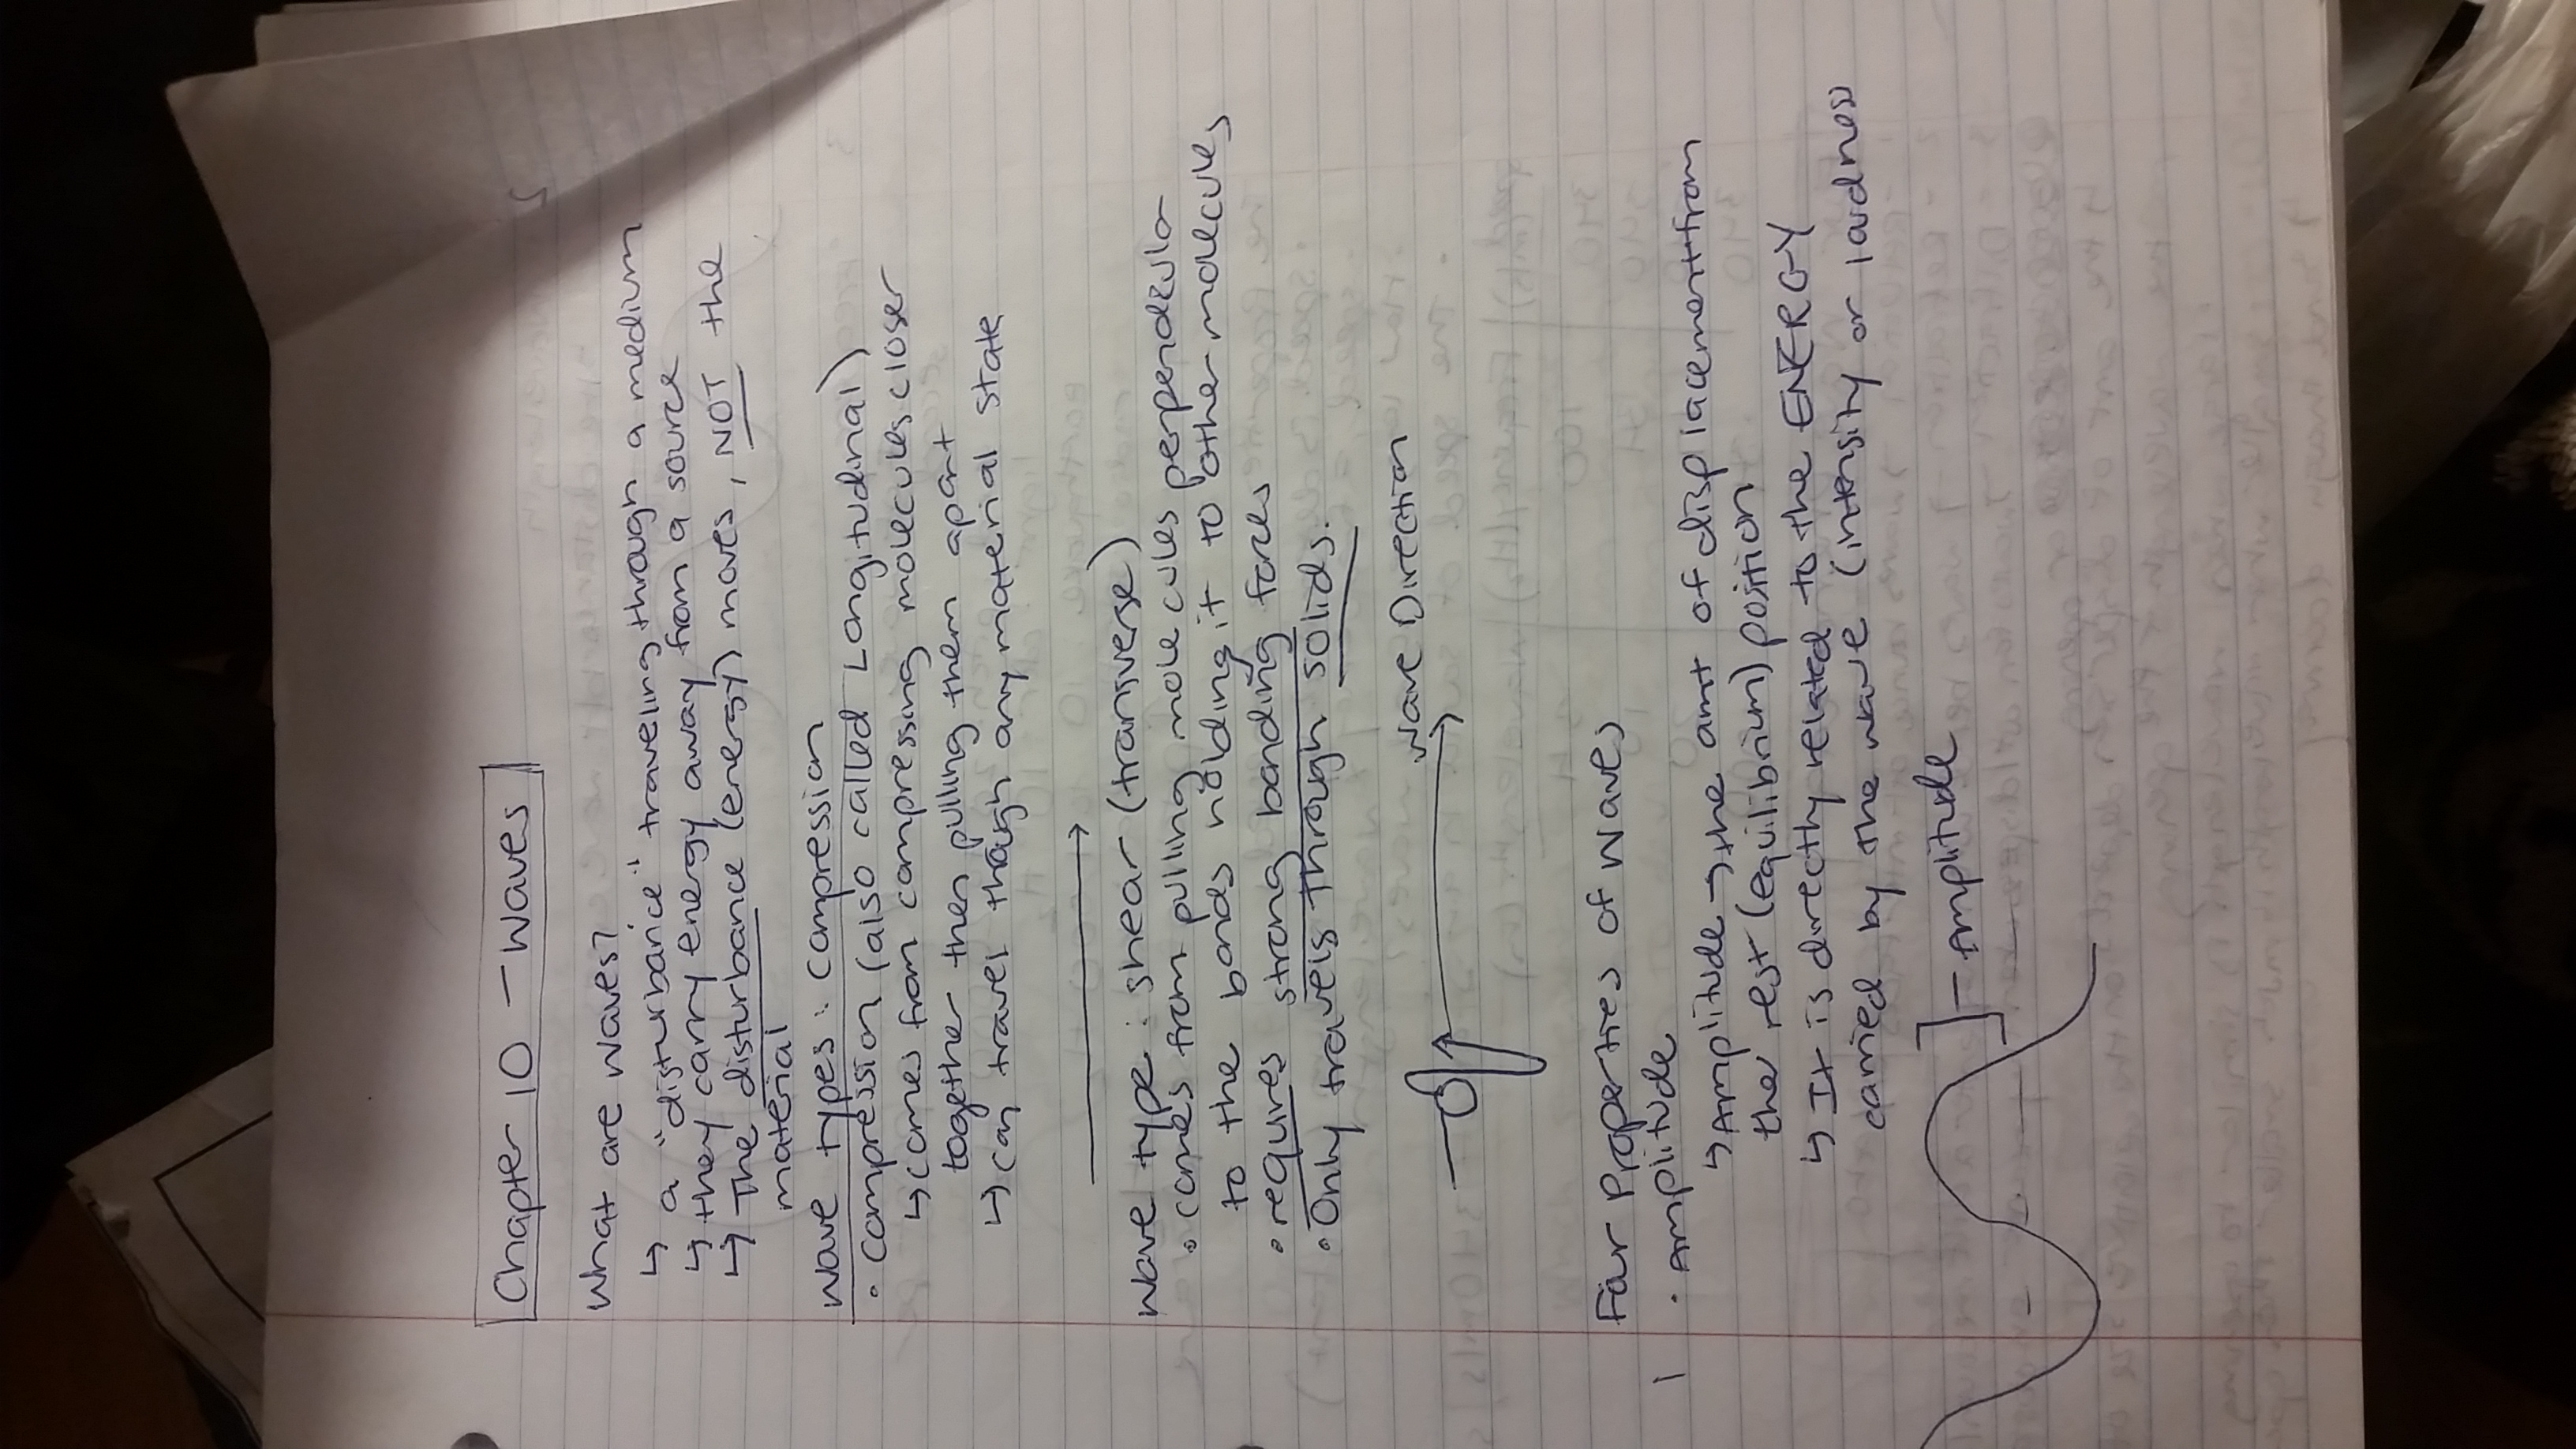 Chapter 10 - Waves
What are waves?
↳ a "disturbance" traveling through a medium
↳ they carry energy away from a source
↳ The disturbance (energy) moves, NOT the
material
Wave types: compression
• compression (also called Longitudinal)
↳ comes from compressing molecules closer
together then pulling them apart
↳ can travel through any material state
Wave type: shear (transverse)
• comes from pulling molecules perpendicular
to the bonds holding it to other molecules
• requires strong bonding forces
• Only travels through solids.
Wave Direction
Four Properties of Waves
1. Amplitude
↳ Amplitude → the amt of displacement from
the rest (equilibrium) position
↳ It is directly related to the ENERGY
carried by the wave (intensity or loudness)
Amplitude